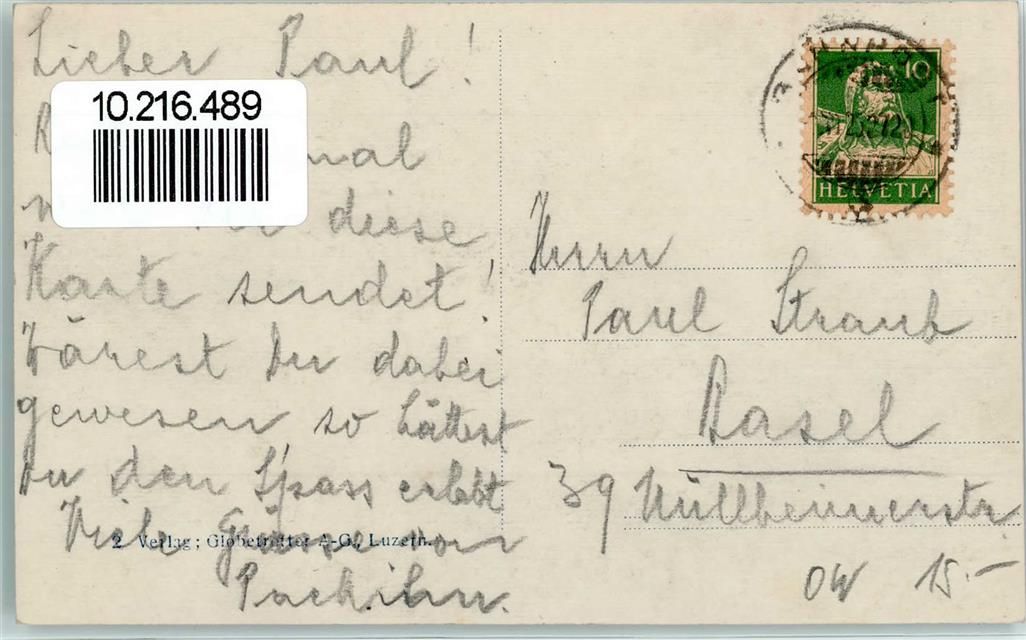 Lieber Paul !
10.216.489
mal
diese
Karte sendet !
Wärest Du dabei
gewesen so hättest
Du den Spass erlebt
Viele Grüsse von
2 Verlag; Globetrotter A-G., Luzern.
10
HELVETIA
Herrn
Paul Straub
Basel
39 Müllheimerstr.
OW 15.-